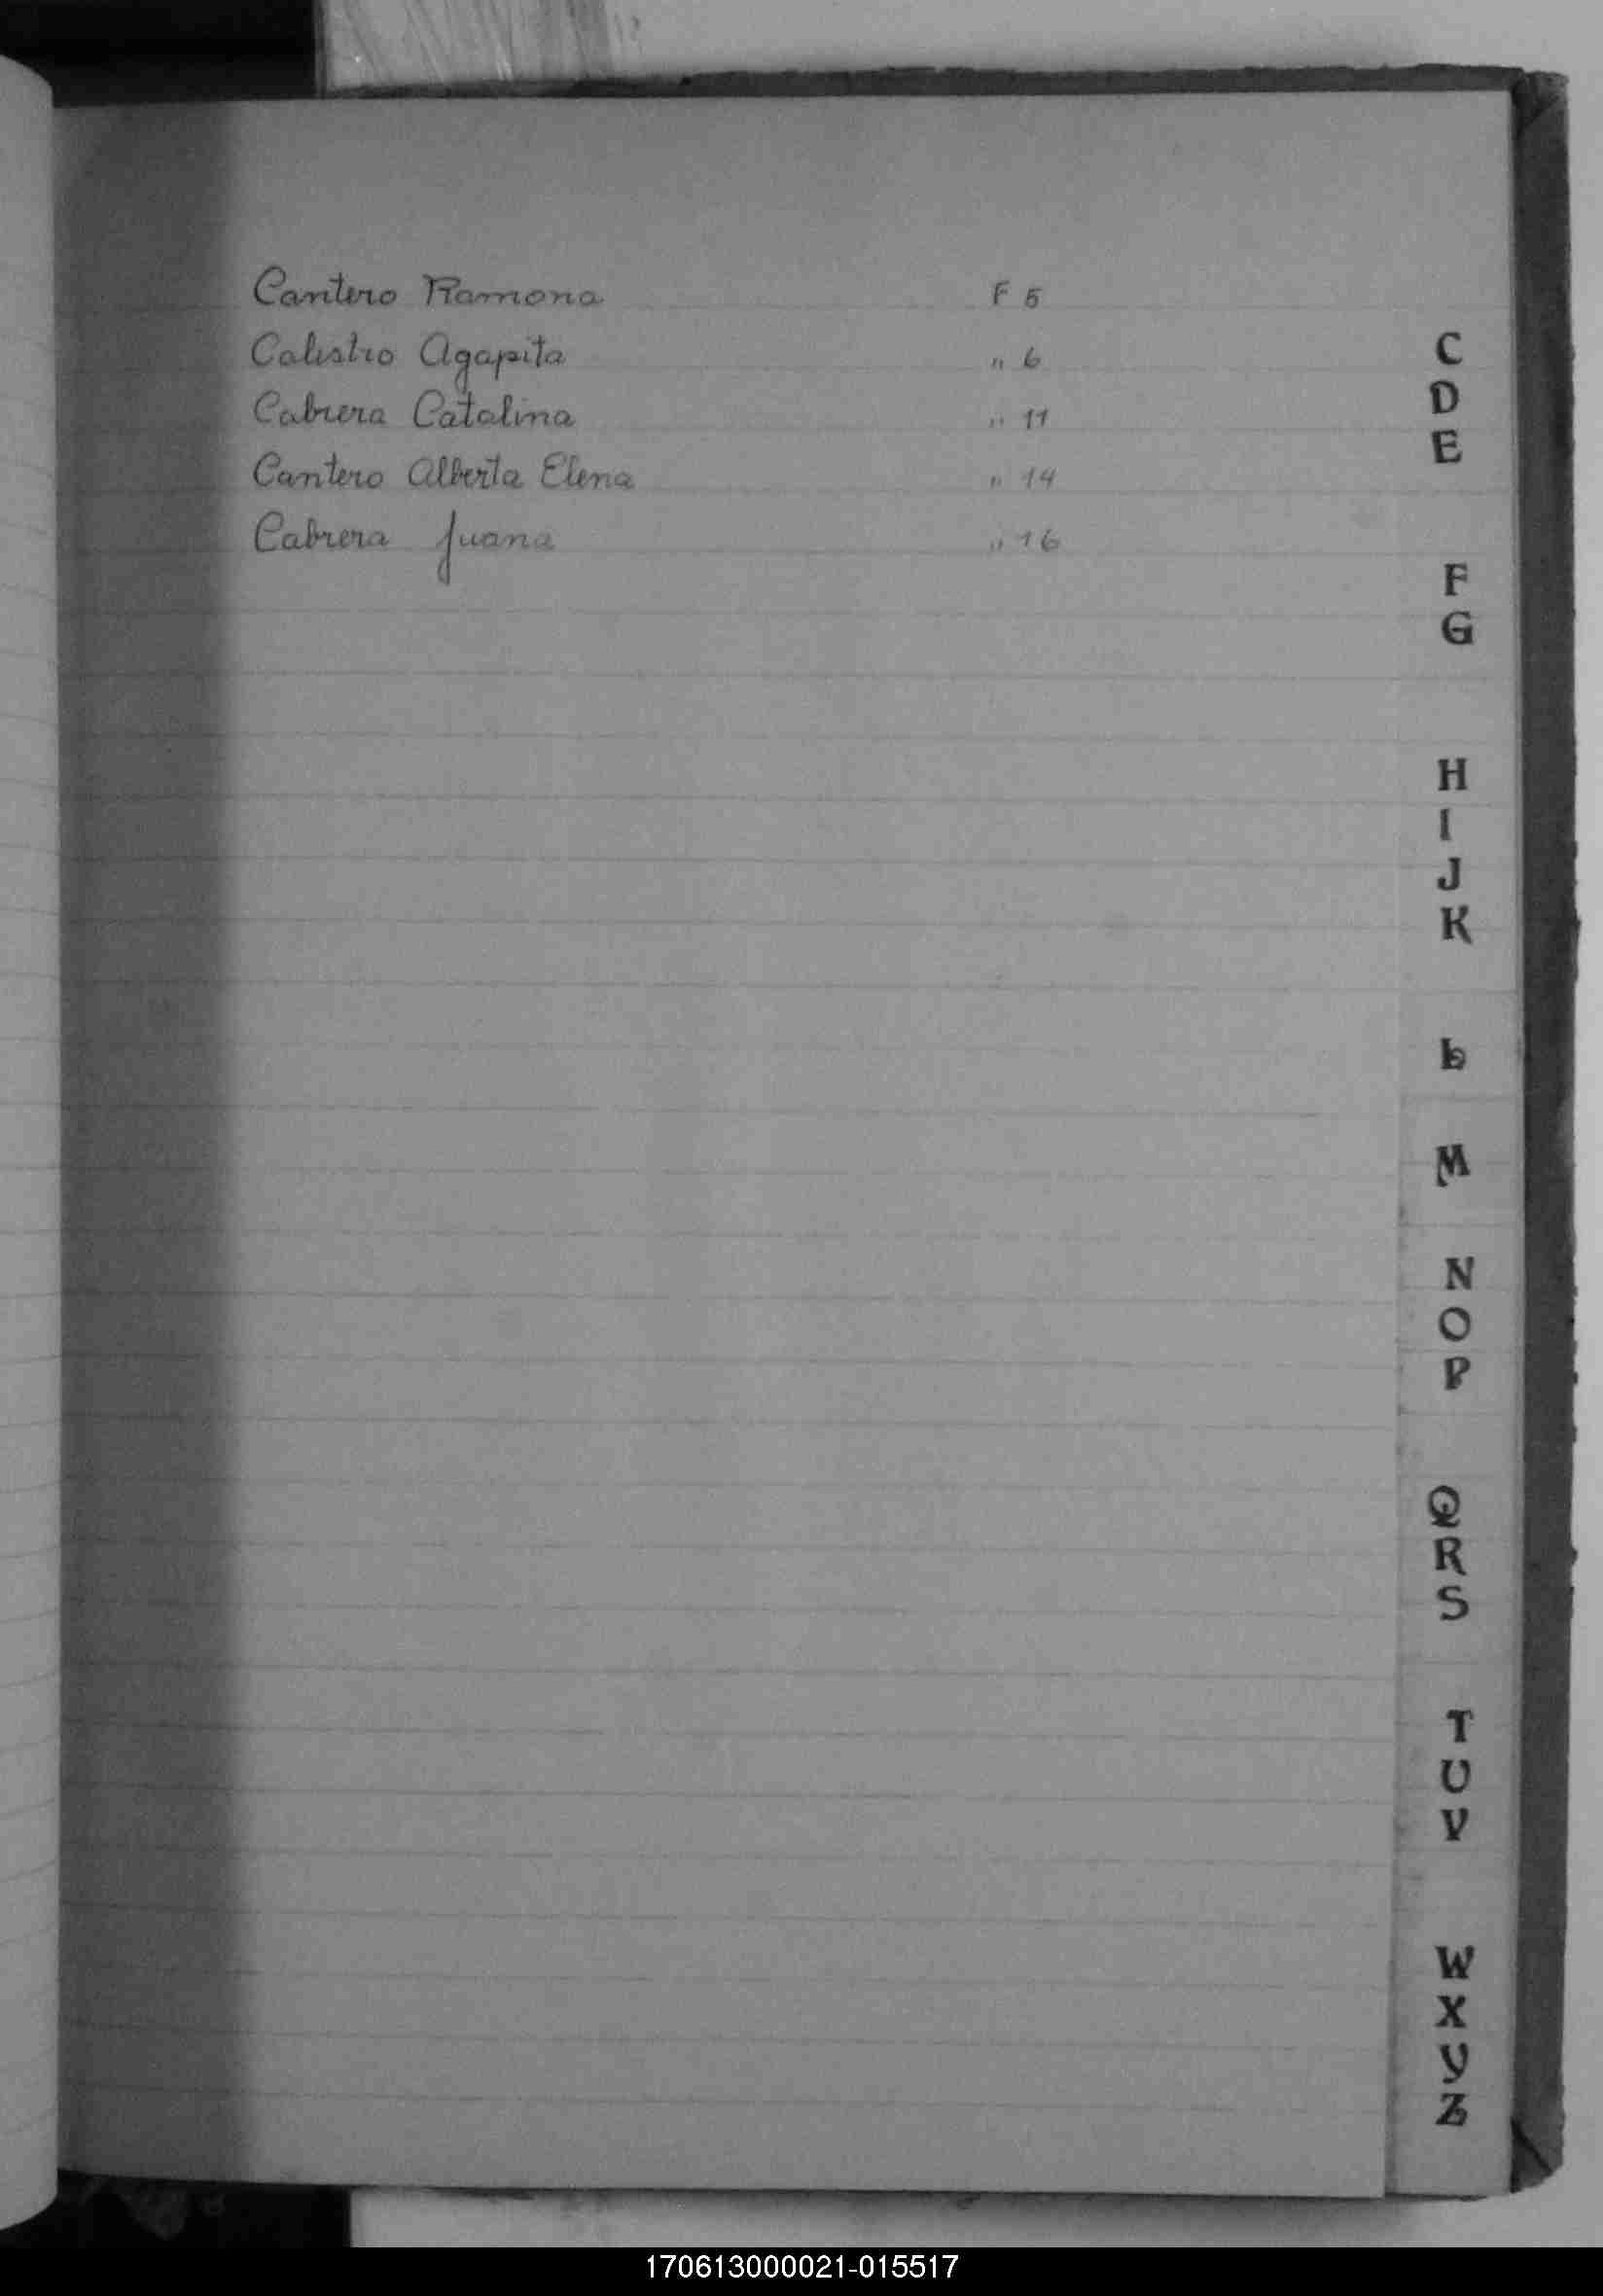 Cantero Ramona F 5
Calistro Agapita " 6
Cabrera Catalina " 11
Cantero Alberta Elena " 14
Cabrera Juana " 16
C
D
E
F
G
H
I
J
K
L
M
N
O
P
Q
R
S
T
U
V
W
X
Y
Z
170613000021-015517